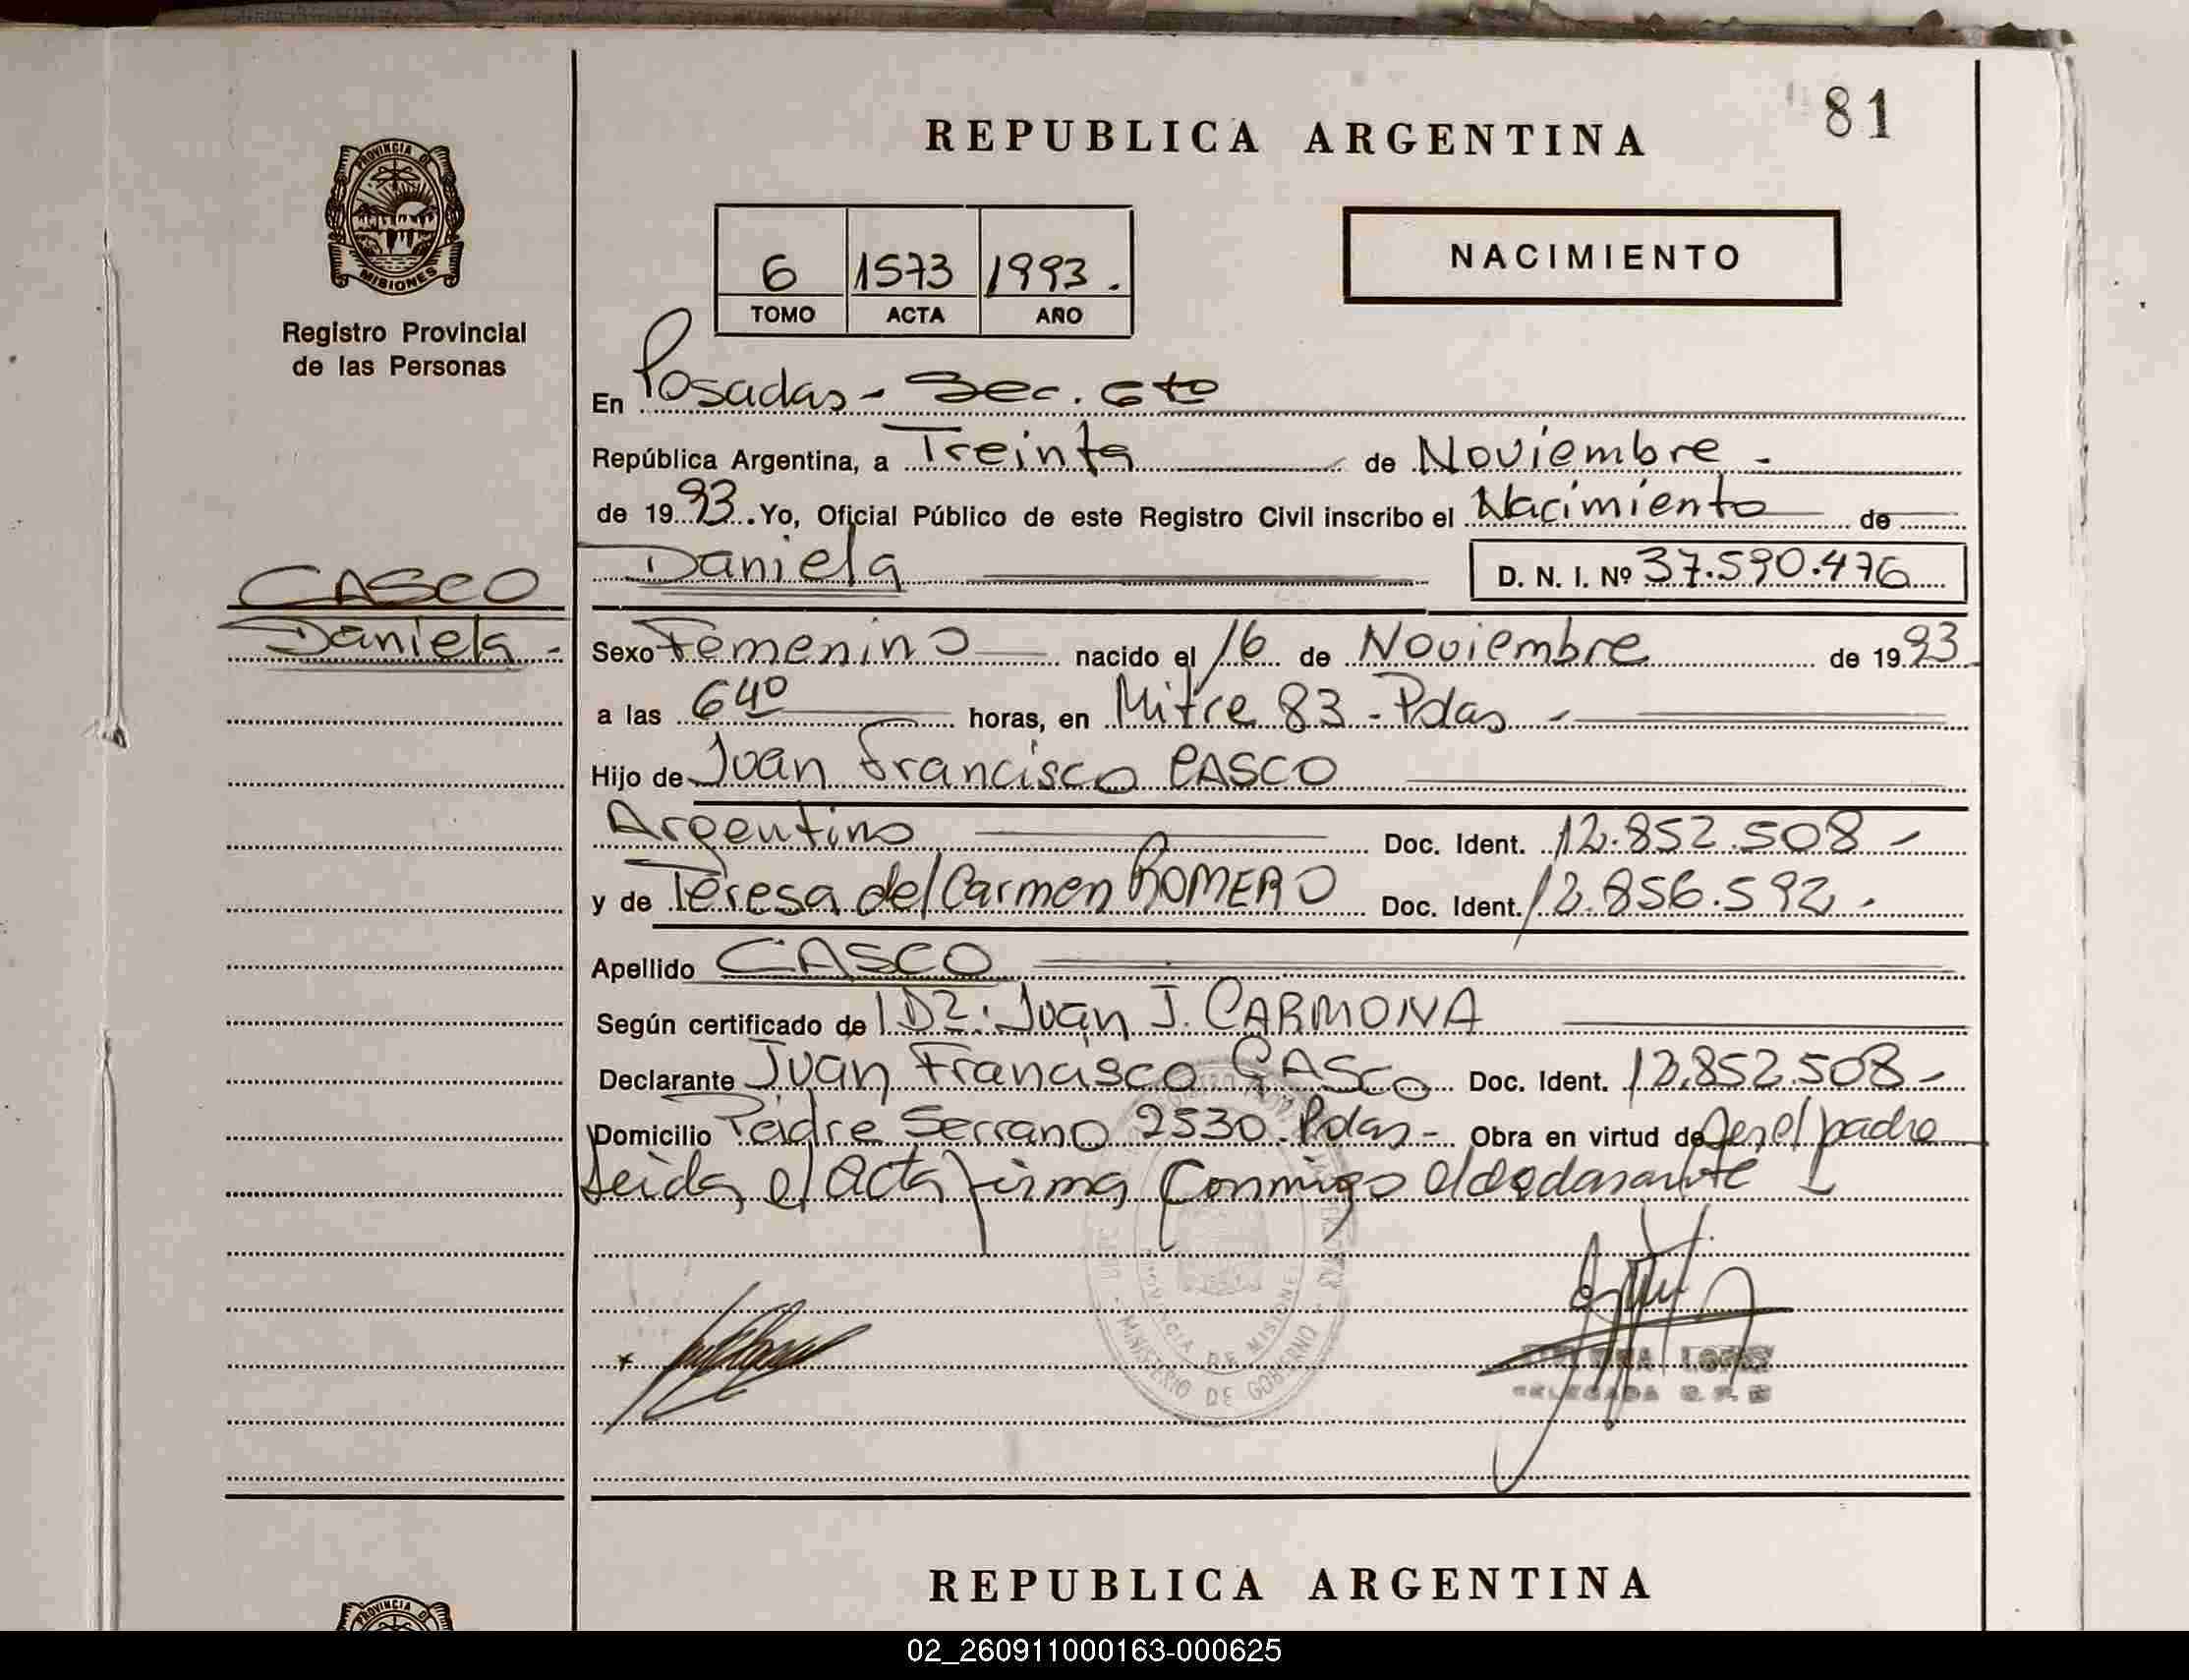 81
REPUBLICA ARGENTINA
PROVINCIA DE
MISIONES
Registro Provincial
de las Personas
6 1573 1993.
TOMO ACTA AÑO
NACIMIENTO
En Posadas - Sec. 6to
República Argentina, a Treinta de Noviembre -
de 1993. Yo, Oficial Público de este Registro Civil inscribo el Nacimiento de
Daniela D. N. I. Nº 37.590.476
CASCO
Daniela -
Sexo Femenino nacido el 16 de Noviembre de 1993
a las 6 40 horas, en Mitre 83 - Pdas -
Hijo de Juan Francisco CASCO
Argentino Doc. Ident. 12.852.508 -
y de Teresa del Carmen ROMERO Doc. Ident. 12.856.592 .
Apellido CASCO
Según certificado de Juan J. CARMONA
Declarante Juan Francisco CASCO Doc. Ident. 12.852.508 -
Domicilio Padre Serrano 2530 - Pdas - Obra en virtud de ser el padre
Leida el Acta firma conmigo el declarante
PROVINCIA DE MISIONES
MINISTERIO DE GOBIERNO
LOPEZ
DELEGADA
REPUBLICA ARGENTINA
PROVINCIA DE
02_260911000163-000625